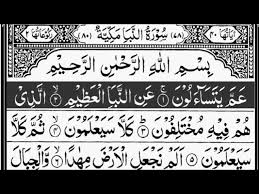 اٰيَاتُهَا ٤٠ (٧٨) سُوْرَةُ النَّبَاِ مَكِّيَّةٌ (٨٠) رُكُوْعَاتُهَا ٢
بِسْمِ اللّٰهِ الرَّحْمٰنِ الرَّحِيْمِ
عَمَّ يَتَسَآءَلُوْنَ ۝١ عَنِ النَّبَاِ الْعَظِيْمِ ۝٢ الَّذِيْ
هُمْ فِيْهِ مُخْتَلِفُوْنَ ۝٣ كَلَّا سَيَعْلَمُوْنَ ۝٤ ثُمَّ كَلَّا
سَيَعْلَمُوْنَ ۝٥ اَلَمْ نَجْعَلِ الْاَرْضَ مِهٰدًا ۝٦ وَّالْجِبَالَ